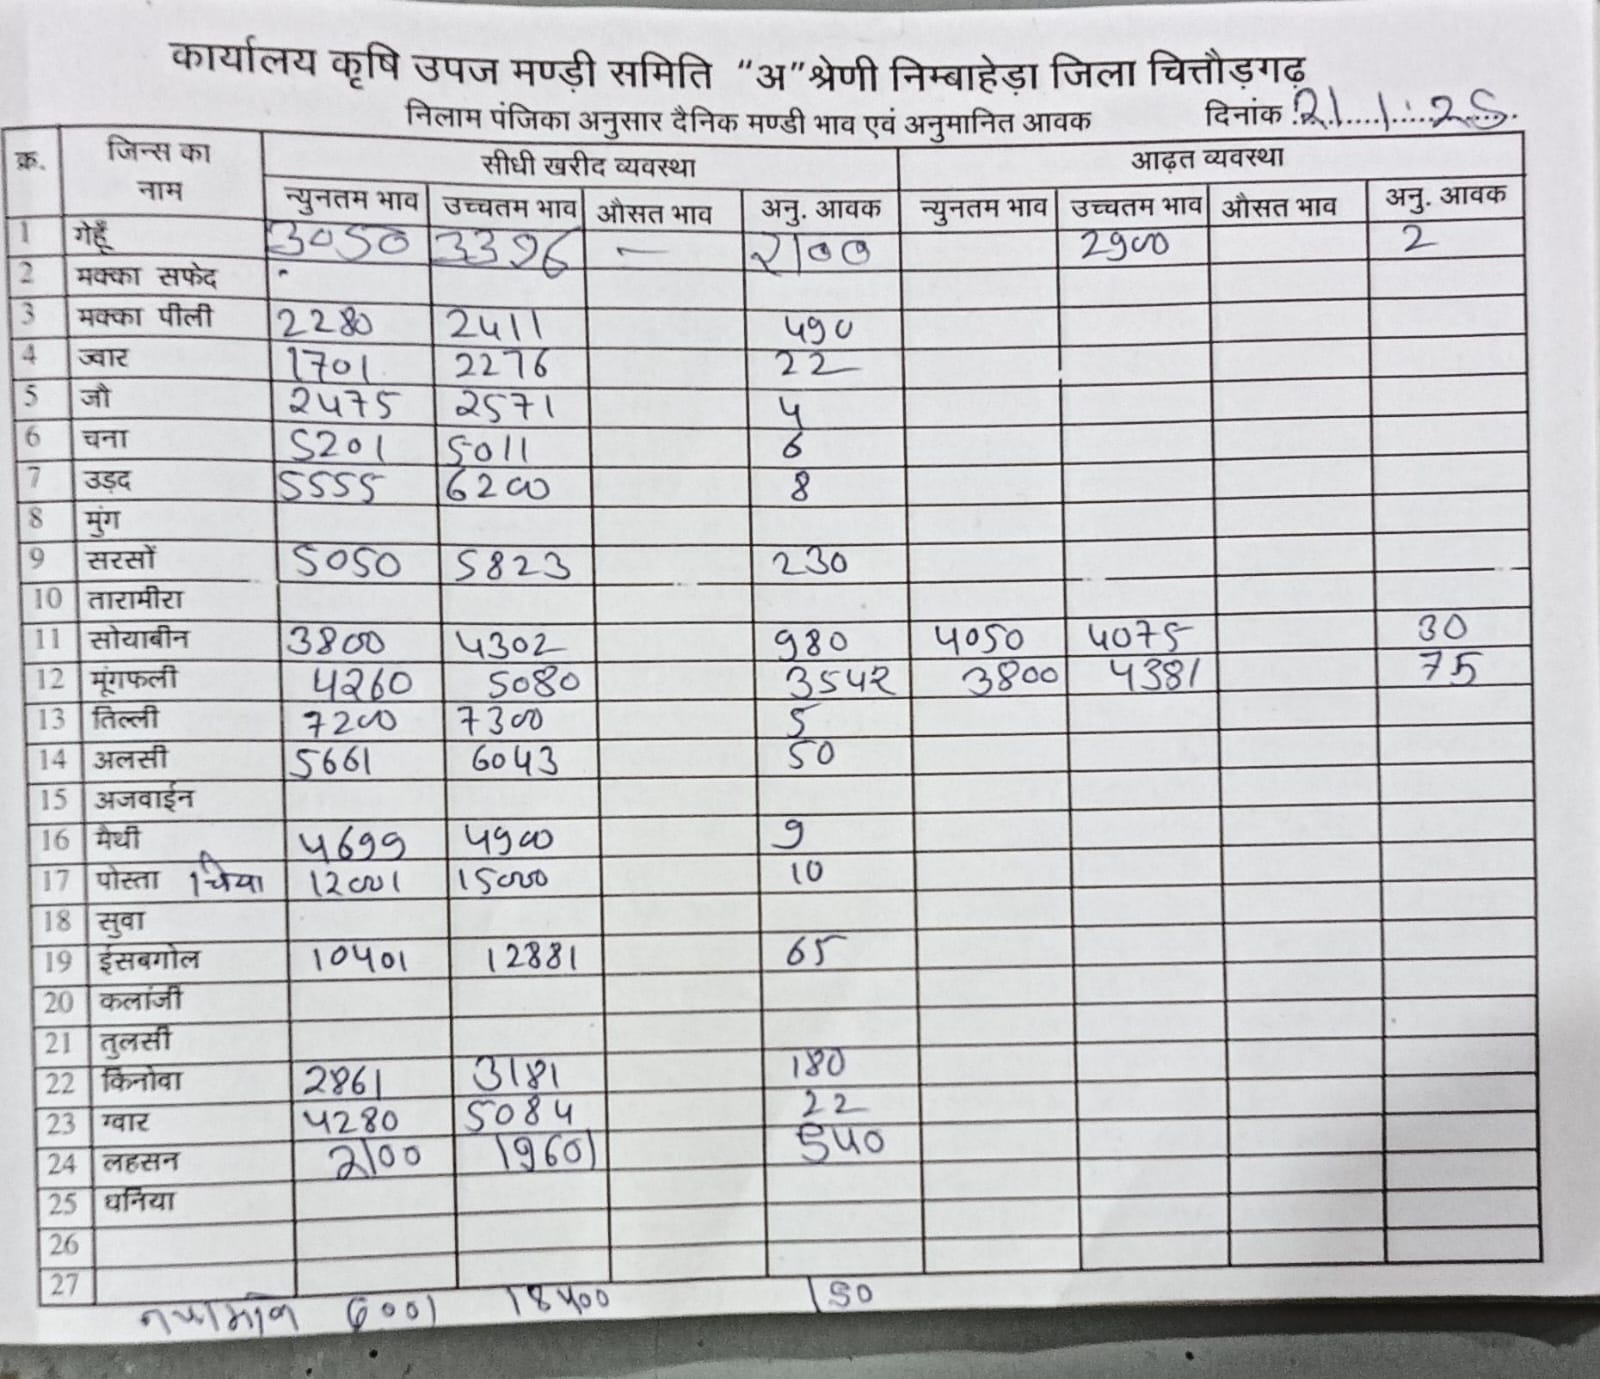 कार्यालय कृषि उपज मण्ड़ी समिति "अ" श्रेणी निम्बाहेड़ा जिला चित्तौड़गढ़
निलाम पंजिका अनुसार दैनिक मण्डी भाव एवं अनुमानित आवक दिनांक 21.1.25
क्र. जिन्स का नाम सीधी खरीद व्यवस्था आढ़त व्यवस्था
न्युनतम भाव उच्चतम भाव औसत भाव अनु. आवक न्युनतम भाव उच्चतम भाव औसत भाव अनु. आवक
1 गेहूँ 3050 3326 — 2100 2900 2
2 मक्का सफेद
3 मक्का पीली 2280 2411 490
4 ज्वार 1701 2276 22
5 जौ 2475 2571 4
6 चना 5201 5011 6
7 उड़द 5555 6200 8
8 मुंग
9 सरसों 5050 5823 230
10 तारामीरा
11 सोयाबीन 3800 4302 980 4050 4075 30
12 मूंगफली 4260 5080 3542 3800 4381 75
13 तिल्ली 7200 7300 5
14 अलसी 5661 6043 50
15 अजवाईन
16 मैथी 4699 4900 9
17 पोस्ता 12001 15000 10
18 सुवा
19 ईसबगोल 10401 12881 65
20 कलांजी
21 तुलसी
22 किनोवा 2861 3181 180
23 ग्वार 4280 5084 22
24 लहसन 2100 19601 540
25 धनिया
26
27
18400 150